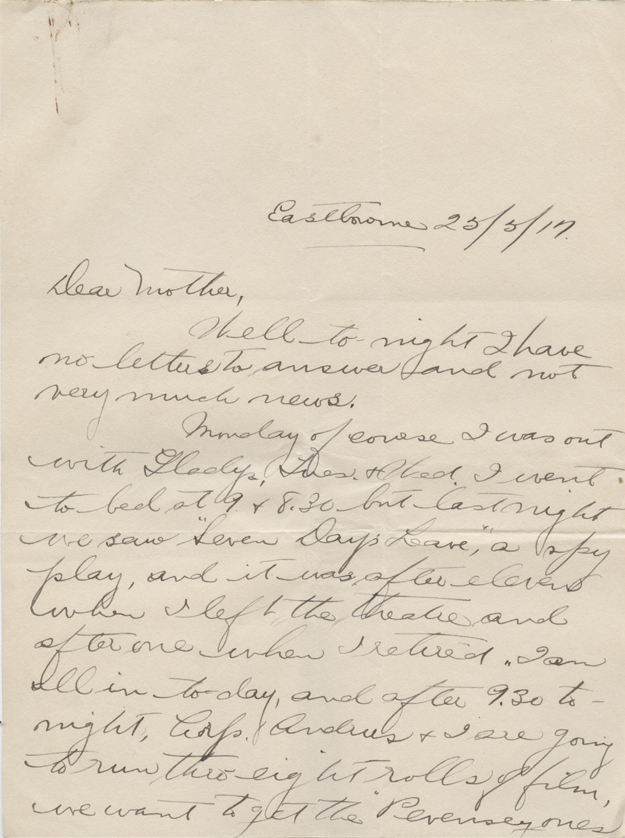 Eastbourne 25/5/17.
Dear Mother,
Well to-night I have
no letters to answer and not
very much news.
Monday of course I was out
with Gladys, Tues. & Wed. I went
to bed at 9 & 8.30 but last night
we saw "Seven Days Leave," a spy
play, and it was after eleven
when I left the theatre and
after one when I retired. I am
all in to-day, and after 9.30 to-
night, Corp. Andrus & I are going
to run thro eight rolls of film,
we want to get the "Pevensey ones